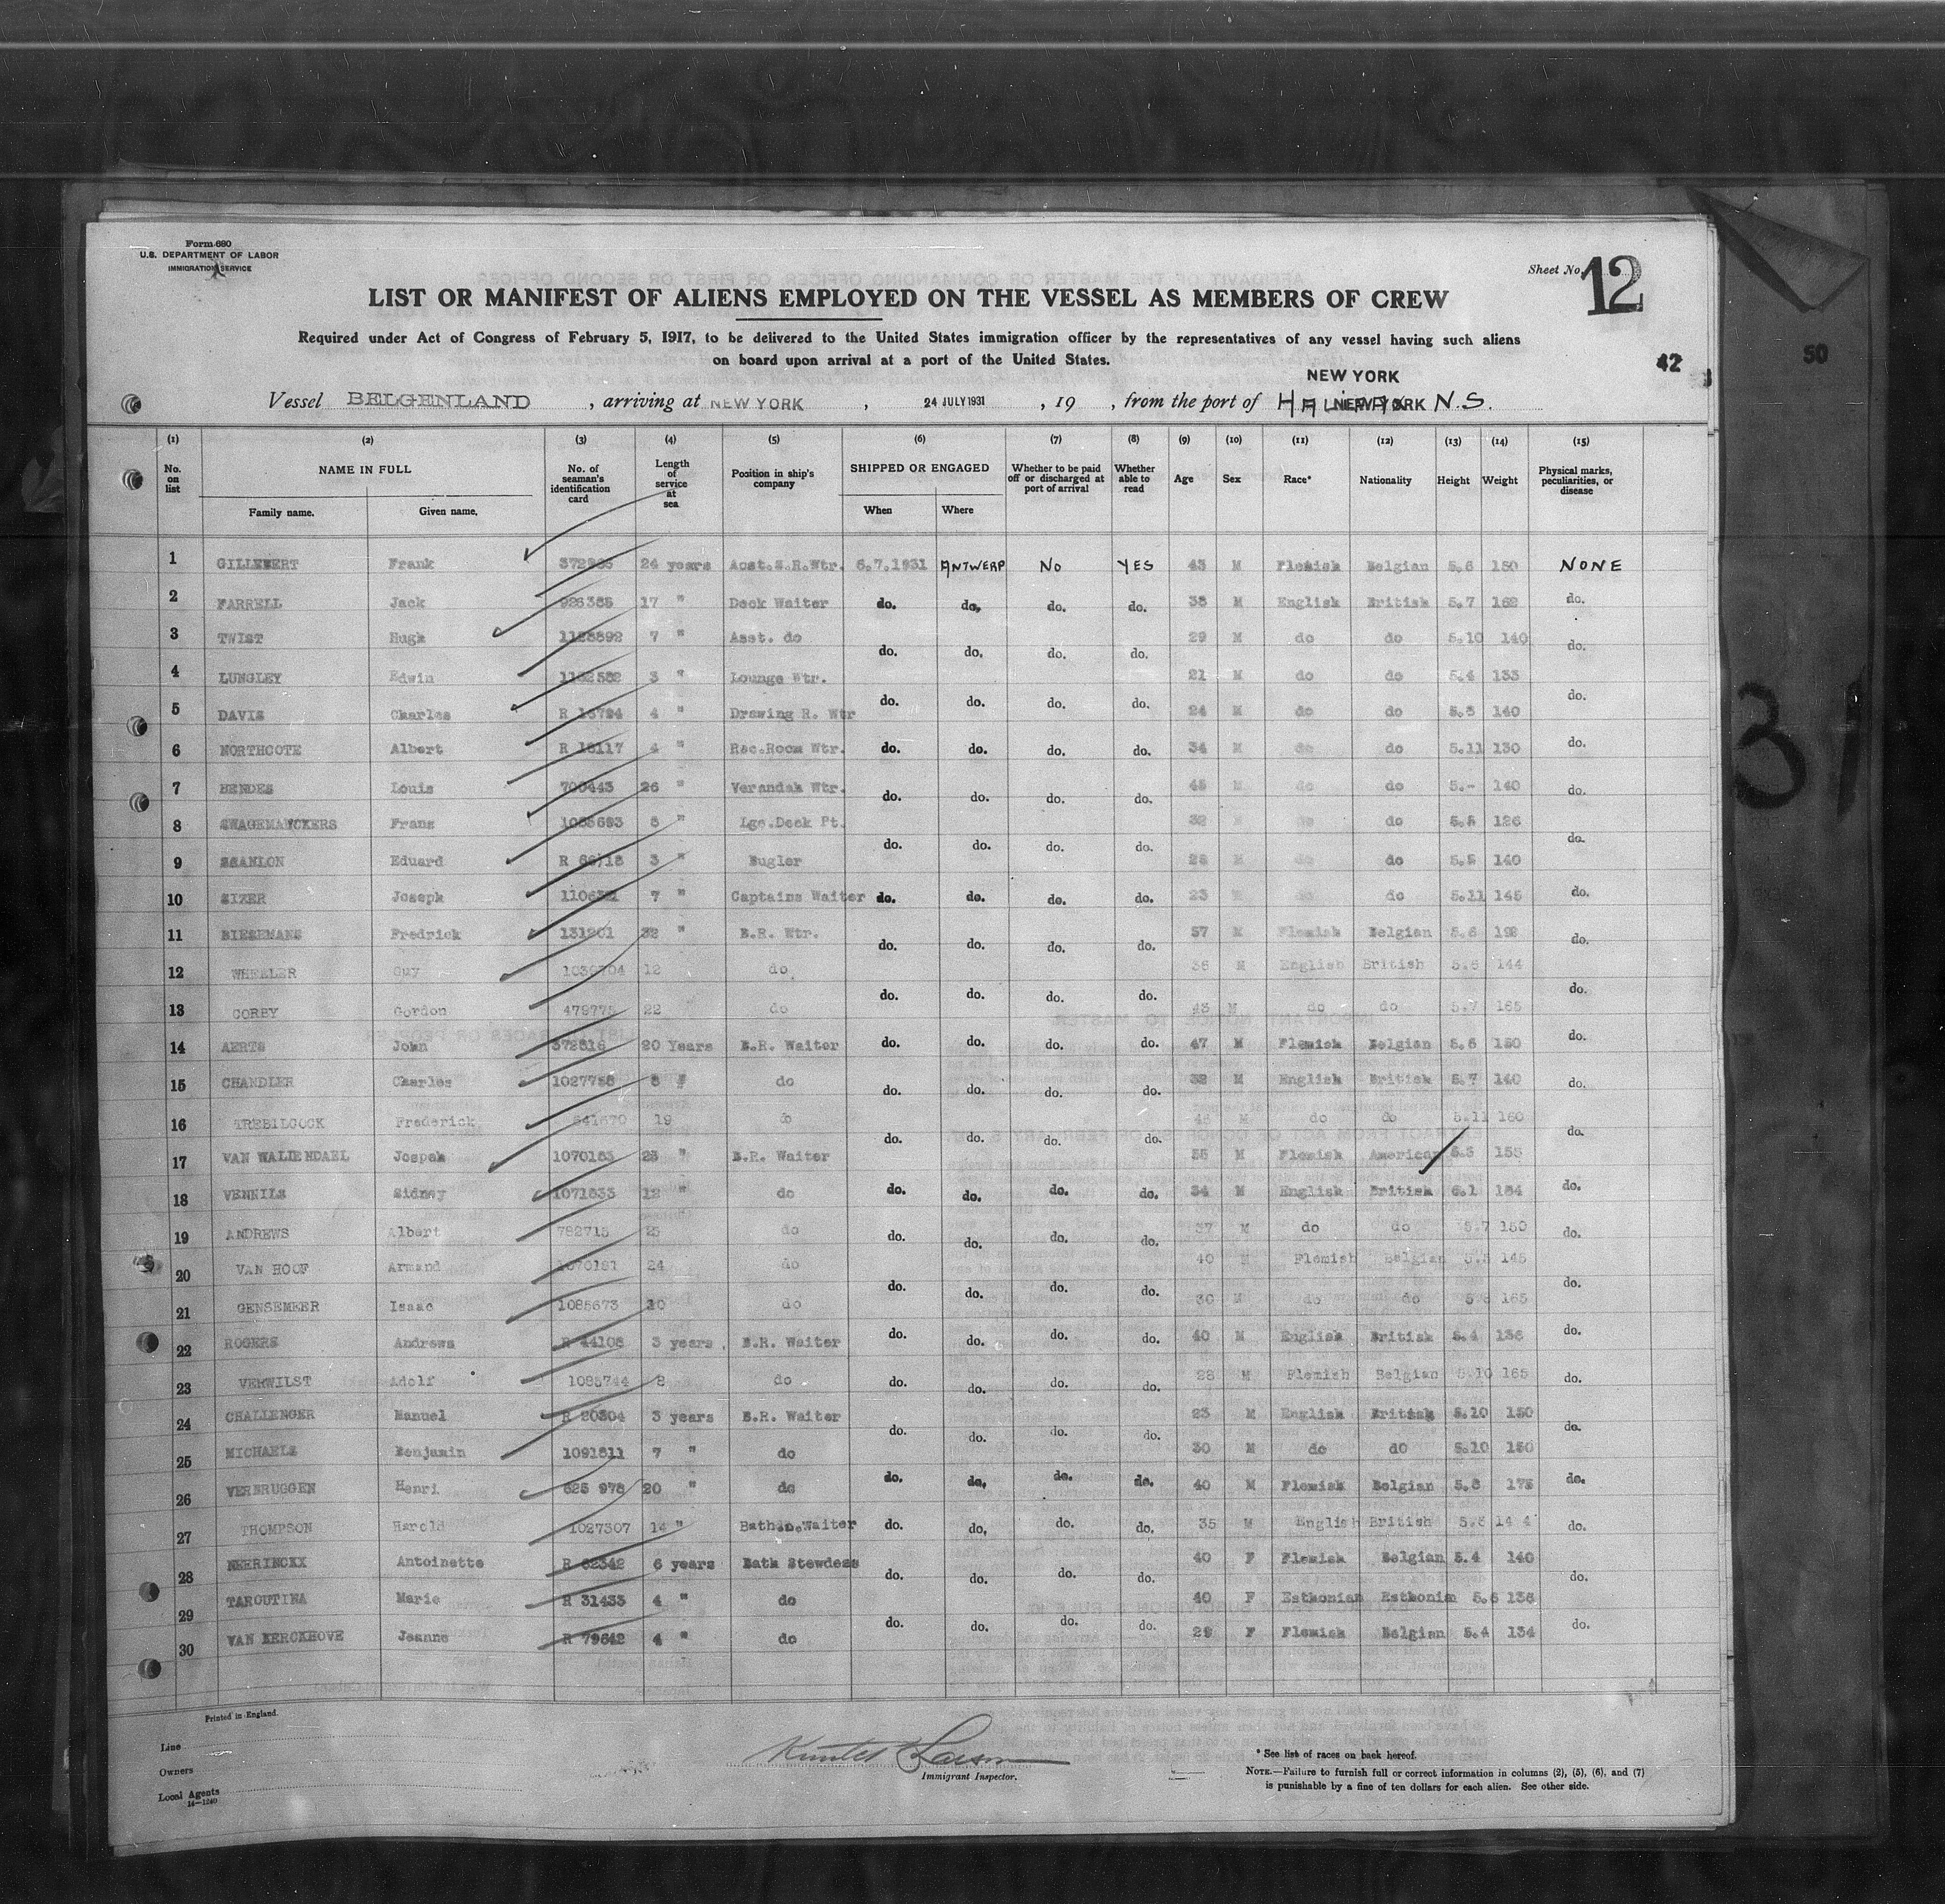 Form 680
U.S. DEPARTMENT OF LABOR
IMMIGRATION SERVICE
Sheet No. 12
LIST OR MANIFEST OF ALIENS EMPLOYED ON THE VESSEL AS MEMBERS OF CREW
Required under Act of Congress of February 5, 1917, to be delivered to the United States immigration officer by the representatives of any vessel having such aliens
on board upon arrival at a port of the United States.
42
50
NEW YORK
Vessel BELGENLAND , arriving at NEW YORK , 24 JULY 1931 , 19 , from the port of HALIFAX N.S.
(1) (2) (3) (4) (5) (6) (7) (8) (9) (10) (11) (12) (13) (14) (15)
No. on list NAME IN FULL Family name. Given name. No. of seaman's identification card Length of service at sea Position in ship's company SHIPPED OR ENGAGED When Where Whether to be paid off or discharged at port of arrival Whether able to read Age Sex Race* Nationality Height Weight Physical marks, peculiarities, or disease
1 Frank 24 years Asst.S.R.Wtr. 6.7.1931 ANTWERP NO YES M Flemish Belgian 5.6 150 NONE
2 FARRELL Jack 926385 17 " Deck Waiter do. do. do. do. M English British 5.7 162 do.
3 TWIST Hugh 7 " Asst. do do. do. do. do. 29 M do do 5.10 140 do.
4 LUNGLEY Edwin 3 " Lounge Wtr. do. do. do. do. 21 M do do 5.4 133 do.
5 DAVIS Charles 4 " Drawing R. Wtr do. do. do. do. 24 M do do 140 do.
6 NORTHCOTE Albert R 18117 4 " Rec.Room Wtr. do. do. do. do. 34 M do do 5.11 130 do.
7 Louis 26 " Verandah Wtr. do. do. do. do. M do do 5.- 140 do.
8 SWAGEMANCKERS Frans " Lge.Deck Pt. do. do. do. do. 32 do 126 do.
9 SCANLON Eduard 3 " Bugler do. do. do. do. M do 140 do.
10 SIZER Joseph 7 " Captains Waiter do. do. do. do. 23 do 5.11 145 do.
11 BIESEMANS Fredrick 32 " B.R. Wtr. do. do. do. do. 57 M Flemish Belgian 5.6 do.
12 WHEELER Guy 12 do. 36 M English British 144 do.
13 CORBY Gordon 22 do M do do 5.7 165
14 AERTS John 372816 20 Years B.R. Waiter do. do. do. do. 47 M Flemish Belgian 5.6 150 do.
15 CHANDLER Charles " do do. do. do. do. M English British 5.7 140 do.
16 TREBILCOCK Frederick 19 do do. do. do. do. M do do 5.11 160 do.
17 Jospeh 1070183 " B.R. Waiter M Flemish American
18 VENNILS Sidney 1071833 12 " do do. do. do. do. 34 M English British 6.1 do.
19 ANDREWS Albert 782715 do do. do. do. do. 37 M do do 5.7 150 do.
20 VAN HOOF Armand 24 do do. do. do. do. 40 M Flemish Belgian 145 do.
21 GENSEMEER Isaac 1085673 do 30 M do do 165
22 ROGERS Andrews R 44108 3 years. B.R. Waiter do. do. do. do. 40 M English British 5.4 136 do.
23 VERWILST Adolf 1085744 8 do do. do. do. do. 28 M Flemish Belgian 5.10 165 do.
24 CHALLENGER Manuel R 20304 3 years B.R. Waiter do. do. do. do. 23 M English British 5.10 150 do.
25 MICHAELS Benjamin 1091811 7 " do 30 M do do 5.10 150
26 VERBRUGGEN Henri 20 " do do. do. do. do. 40 M Flemish Belgian do.
27 THOMPSON Harold 1027307 14 " Waiter do. do. do. do. 35 M English British 144 do.
28 NEERINCKX Antoinette R 62342 6 years Bath Stewdess do. do. do. do. 40 F Flemish Belgian 5.4 140 do.
29 TAROUTINA Marie R 31433 4 " do 40 F Esthonian Esthonia 5.6 136
30 VAN KERCKHOVE Jeanne R 79642 4 " do do. do. do. do. 29 F Flemish Belgian 5.4 134 do.
Printed in England.
Line
Owners
Local Agents
14—1240
Immigrant Inspector.
* See list of races on back hereof.
NOTE.—Failure to furnish full or correct information in columns (2), (5), (6), and (7)
is punishable by a fine of ten dollars for each alien. See other side.